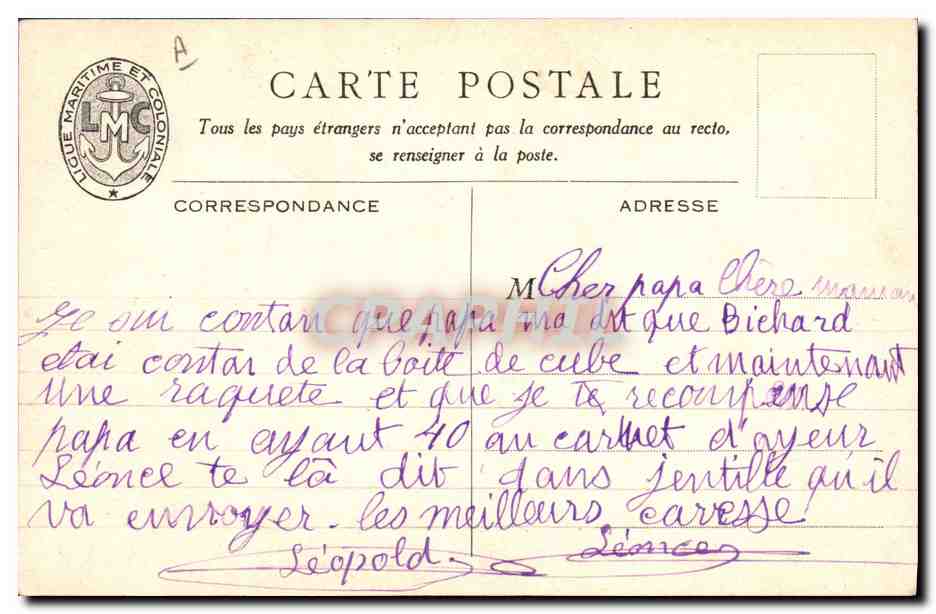 A
LIGUE MARITIME ET COLONIALE
L M C
CARTE POSTALE
Tous les pays étrangers n'acceptant pas la correspondance au recto,
se renseigner à la poste.
CORRESPONDANCE
ADRESSE
M Cher papa Chère maman
Je sui contan que papa ma dit que Bichard
etai contan de la boite de cube et maintenant
une raquete et que je te recompense
papa en ayant 40 au carnet d'ayeur
Léonce te la dit dans jentille qu'il
va envoyer. les meilleurs caresse
Léopold. Léonce